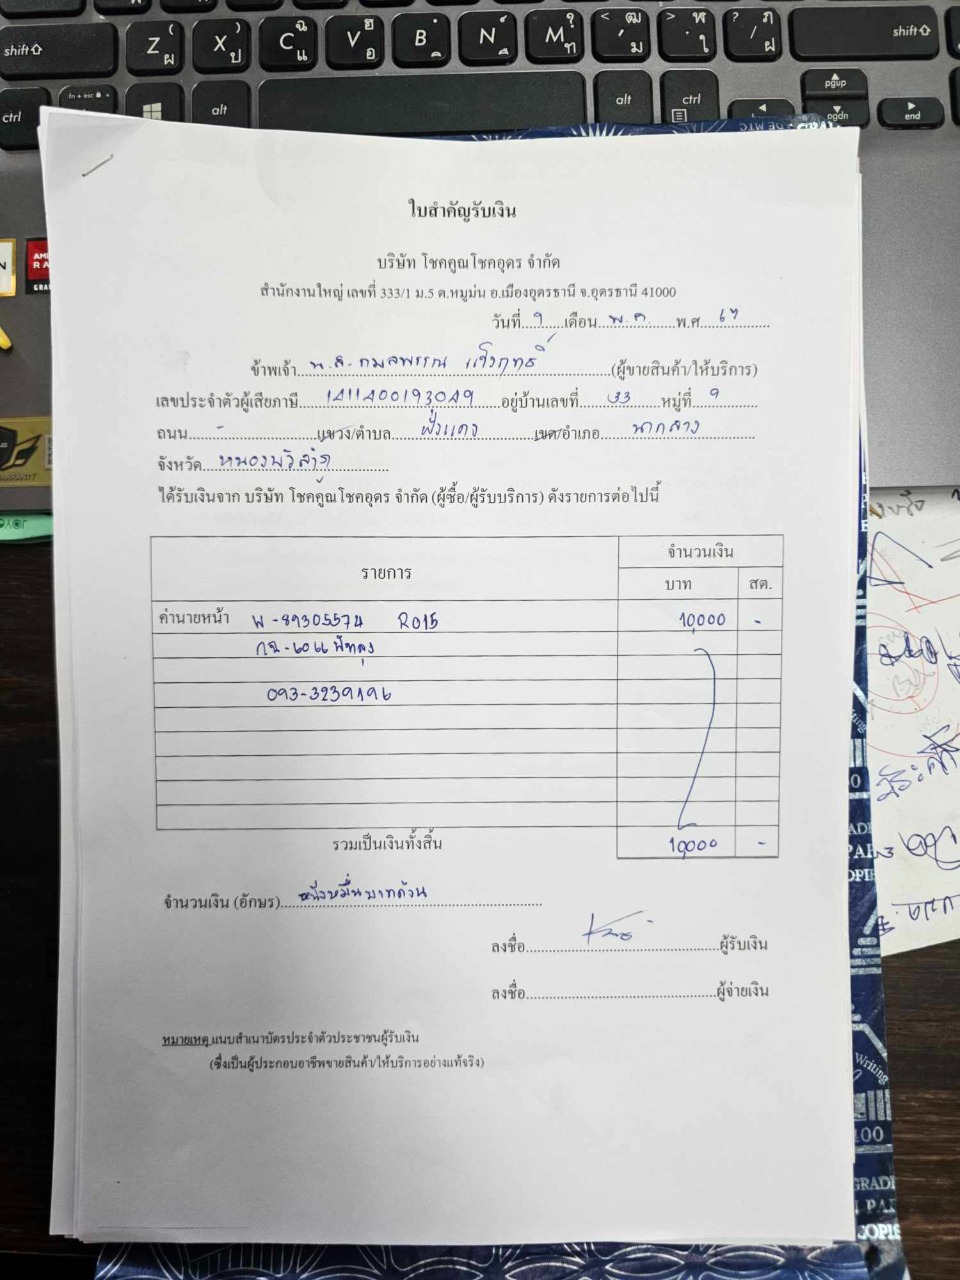 ใบสำคัญรับเงิน
บริษัท โชคคูณโชคอุดร จำกัด
สำนักงานใหญ่ เลขที่ 333/1 ม.5 ต.หมูม่น อ.เมืองอุดรธานี จ.อุดรธานี 41000
วันที่ 9 เดือน พ.ค. พ.ศ 67
ข้าพเจ้า น.ส. กมลพรรณ (ผู้ขายสินค้า/ให้บริการ)
เลขประจำตัวผู้เสียภาษี อยู่บ้านเลขที่ 33 หมู่ที่ 9
ถนน - แขวง/ตำบล ฝั่งแดง เขต/อำเภอ นากลาง
จังหวัด หนองบัวลำภู
ได้รับเงินจาก บริษัท โชคคูณโชคอุดร จำกัด (ผู้ซื้อ/ผู้รับบริการ) ดังรายการต่อไปนี้
รายการ จำนวนเงิน
บาท สต.
ค่านายหน้า R015 10,000 -
พัทลุง
093-3239196
รวมเป็นเงินทั้งสิ้น 10,000 -
จำนวนเงิน (อักษร) หนึ่งหมื่นบาทถ้วน
ลงชื่อ ผู้รับเงิน
ลงชื่อ ผู้จ่ายเงิน
หมายเหตุ แนบสำเนาบัตรประจำตัวประชาชนผู้รับเงิน
(ซึ่งเป็นผู้ประกอบอาชีพขายสินค้า/ให้บริการอย่างแท้จริง)